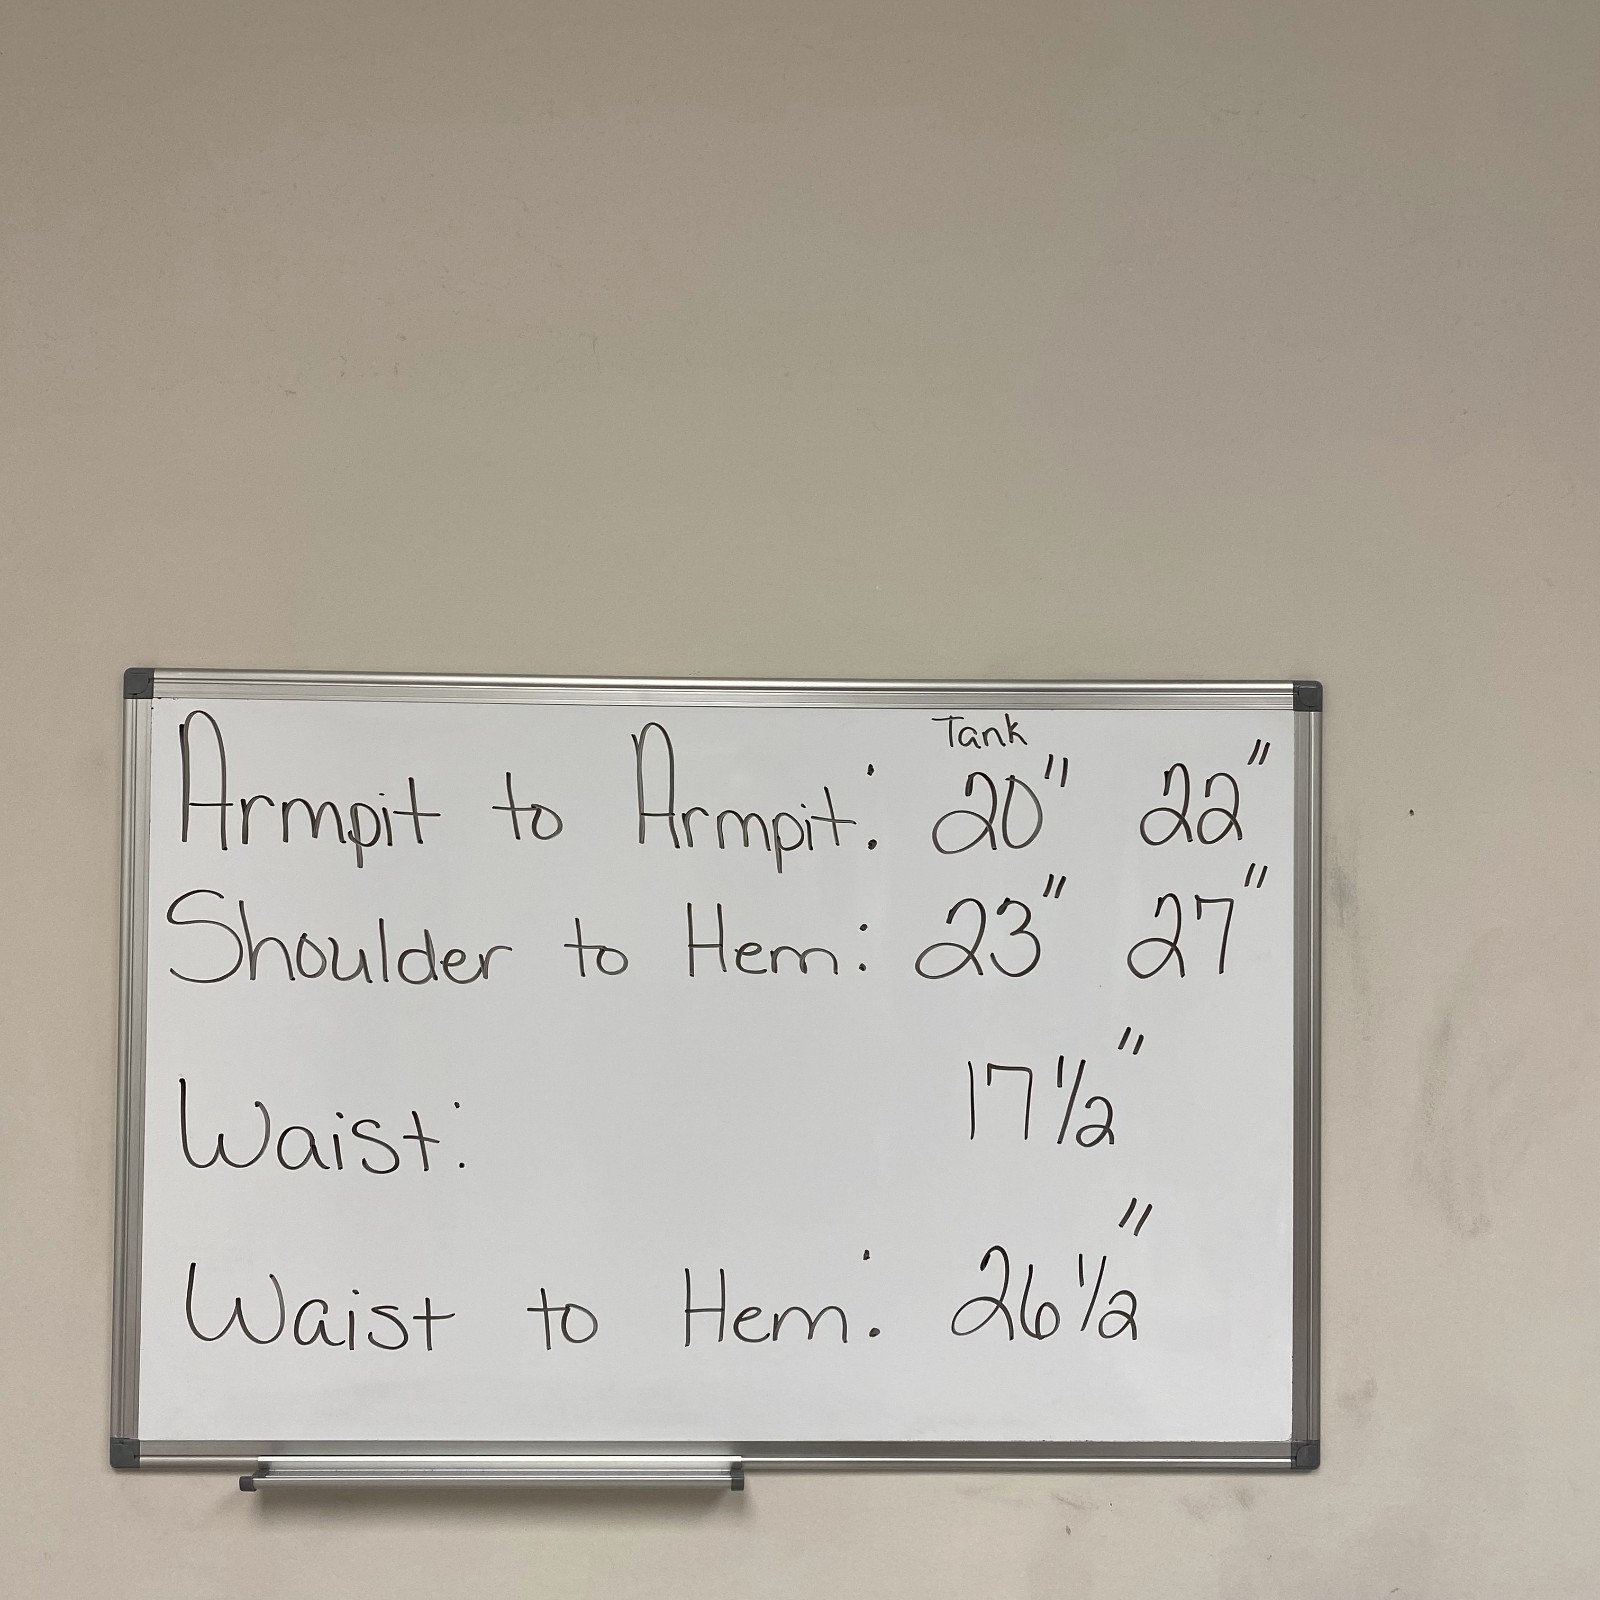 Tank
Armpit to Armpit: 20" 22"
Shoulder to Hem: 23" 27"
Waist: 17 1/2"
Waist to Hem: 26 1/2"